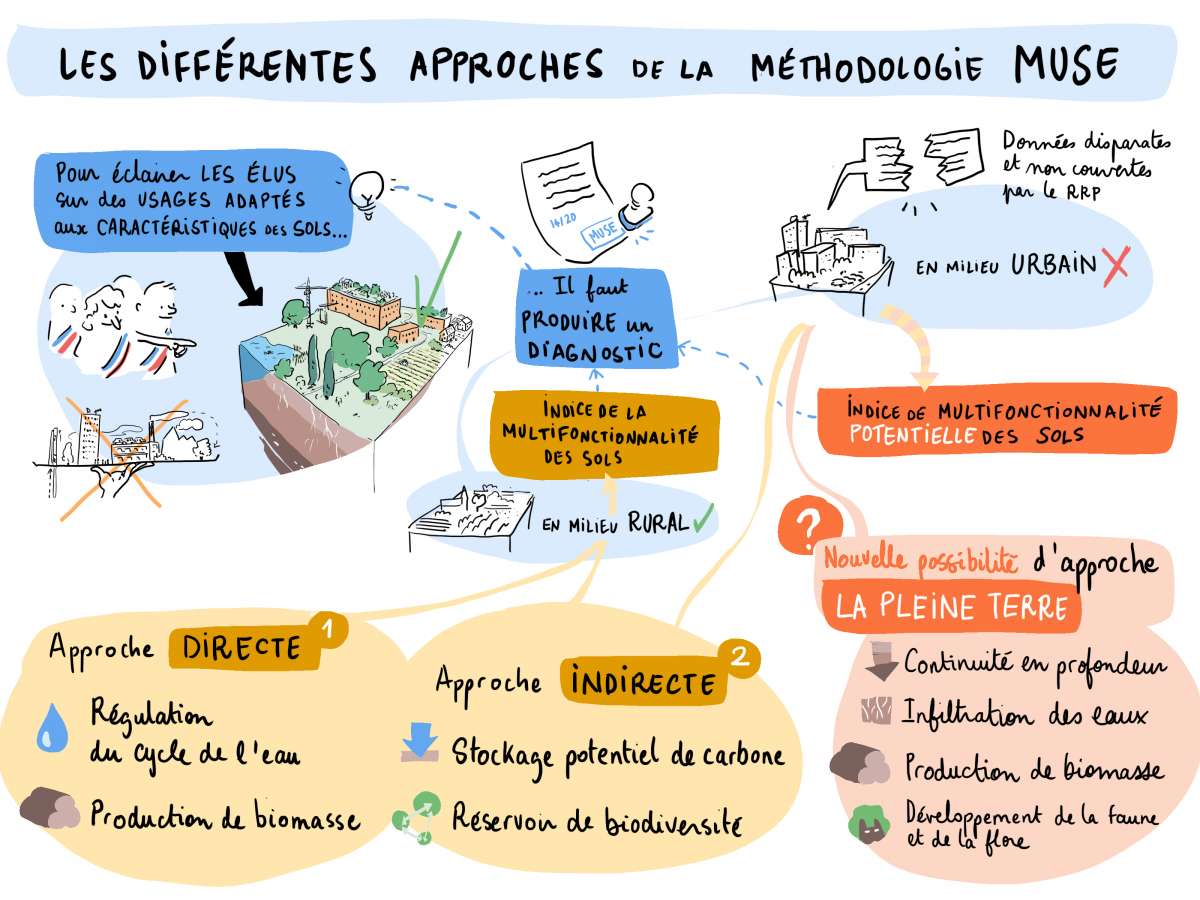 LES DIFFÉRENTES APPROCHES DE LA MÉTHODOLOGIE MUSE
Pour éclairer LES ÉLUS
sur des USAGES ADAPTÉS
aux CARACTÉRISTIQUES des SOLS...
14/20
MUSE
... Il faut
PRODUIRE un
DIAGNOSTIC
Données disparates
et non couvertes
par le RRP
EN MILIEU URBAIN
INDICE DE LA
MULTIFONCTIONNALITÉ
DES SOLS
EN MILIEU RURAL
INDICE DE MULTIFONCTIONNALITÉ
POTENTIELLE DES SOLS
Approche DIRECTE 1
Régulation
du cycle de l'eau
Production de biomasse
Approche INDIRECTE 2
Stockage potentiel de carbone
Réservoir de biodiversité
?
Nouvelle possibilité d'approche
LA PLEINE TERRE
Continuité en profondeur
Infiltration des eaux
Production de biomasse
Développement de la faune
et de la flore